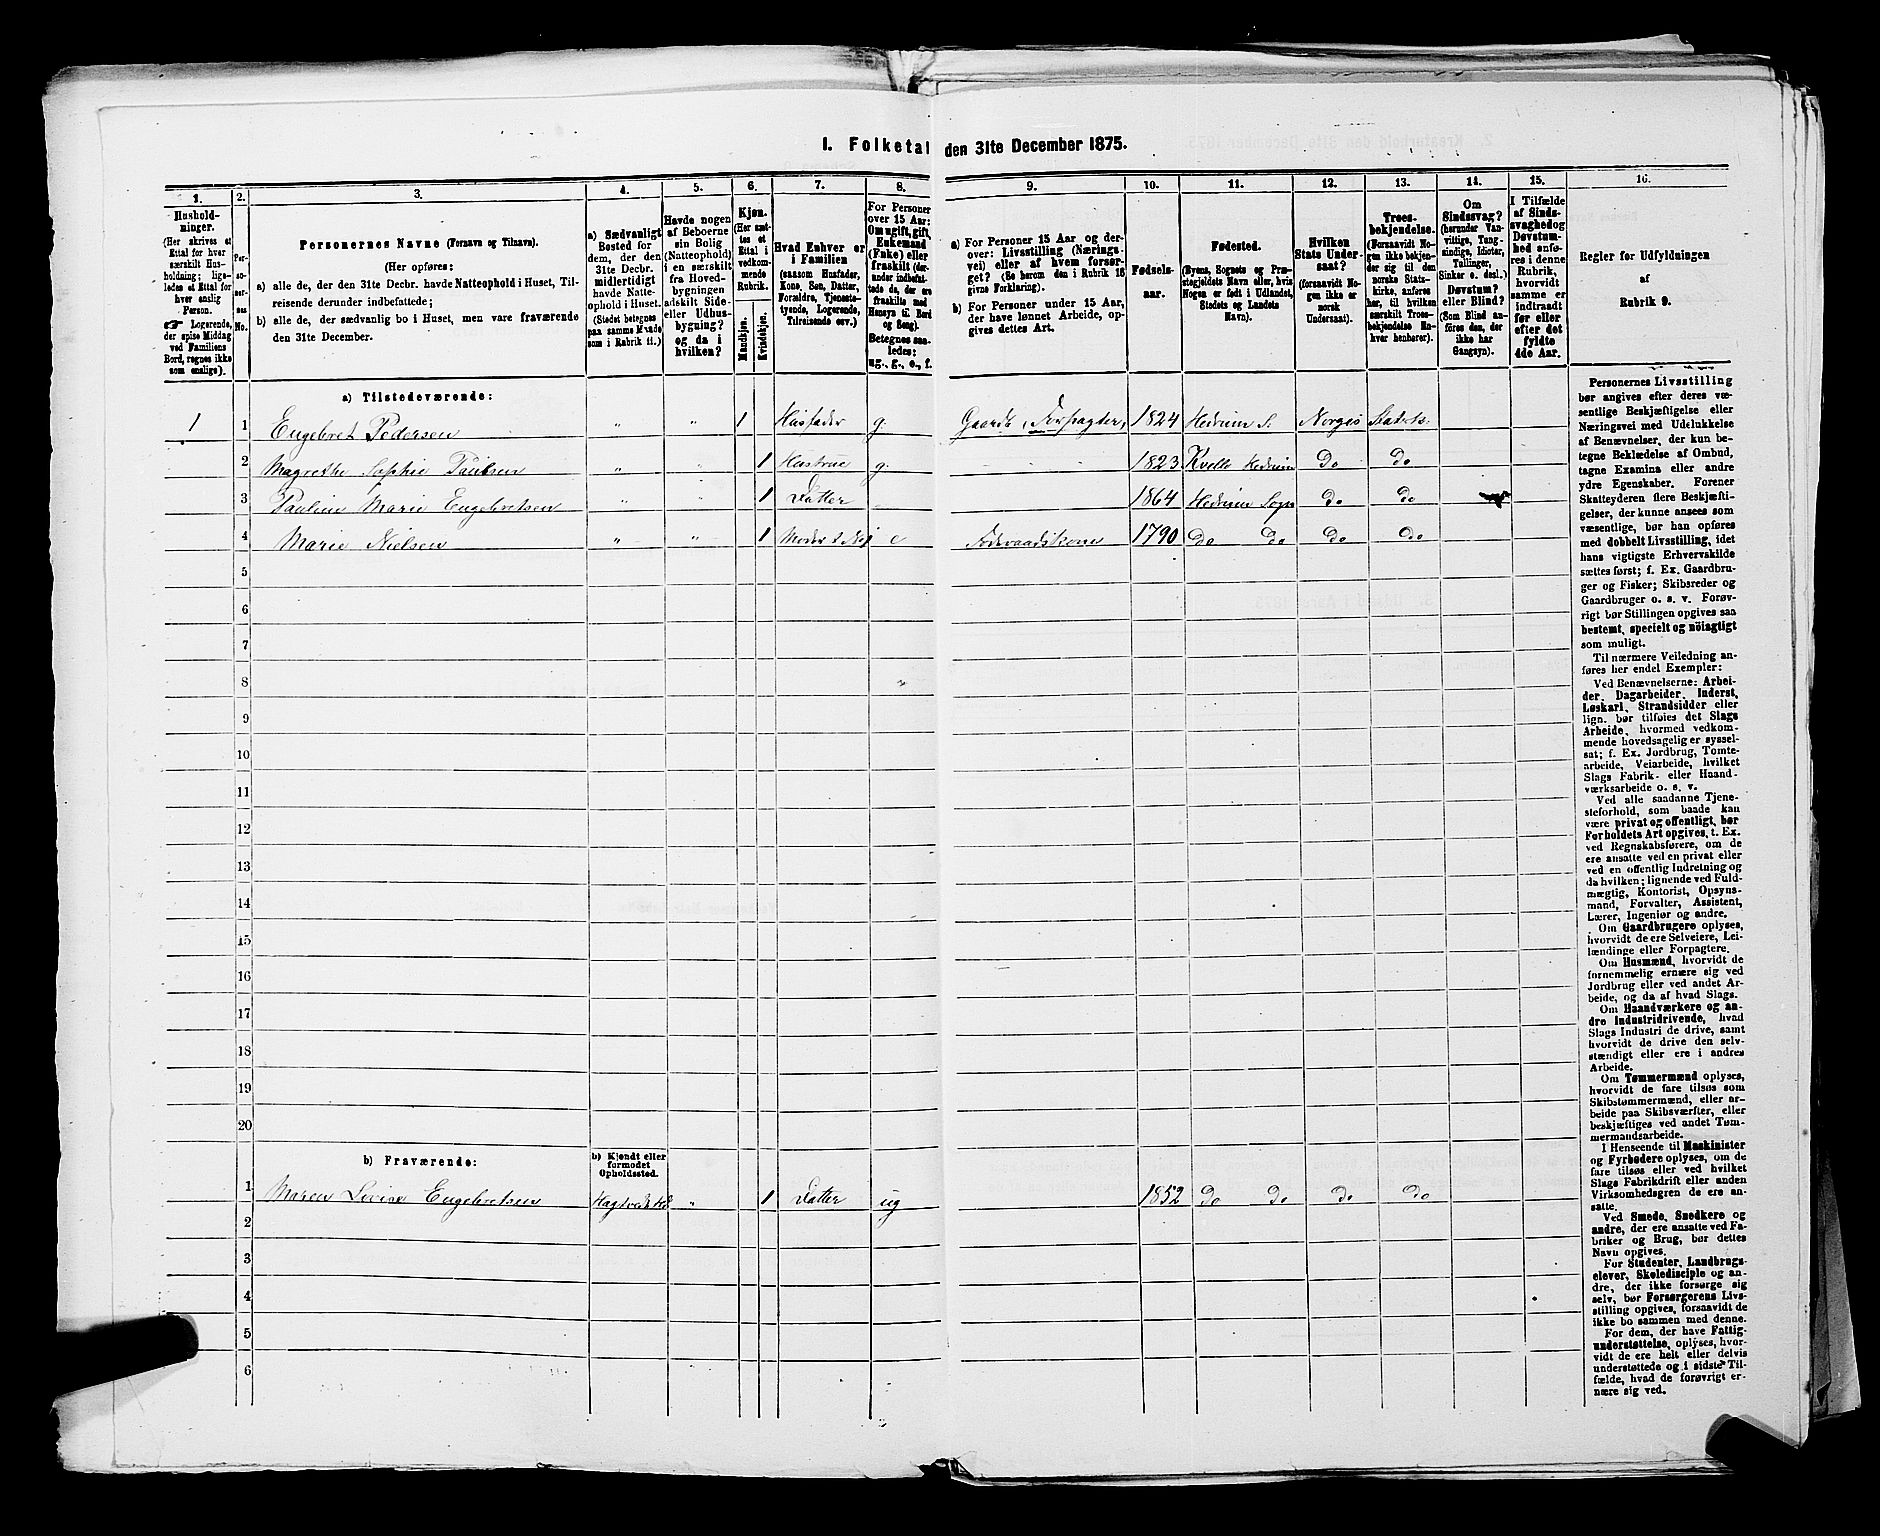 I. Folketal den 31te December 1875.
1. 2. 3. 4. 5. 6. 7. 8. 9. 10. 11. 12. 13. 14. 15. 16.
Hushold-
ninger.
(Her skrives et
Ettal for hver
særskilt Hus-
holdning; lige-
ledes et Ettal for
hver enslig
Person.
☞ Logerende,
der spise Middag
ved Familiens
Bord, regnes ikke
som enslige).
Per-
so-
ner-
nes
No.
Personernes Navne (Fornavn og Tilnavn).
(Her opføres:
a) alle de, der den 31te Decbr. havde Natteophold i Huset, Til-
reisende derunder indbefattede;
b) alle de, der sædvanlig bo i Huset, men vare fraværende
den 31te December.
a) Sædvanligt
Bosted for
dem, der den
31te Decbr.
midlertidigt
havde Natte-
ophold i Huset.
(Stedet betegnes
paa samme Maade
som i Rubrik 11.)
Havde nogen
af Beboerne
sin Bolig
(Natteophold)
i en særskilt
fra Hoved-
bygningen
adskilt Side-
eller Udhus-
bygning?
og da i
hvilken?
Kjøn.
(Her sæt-
tes et
Ettal i
vedkom-
mende
Rubrik.
Mandkjøn.
Kvindekjøn.
Hvad Enhver er
i Familien
(saasom Husfader,
Kone, Søn, Datter,
Forældre, Tjeneste-
tyende, Logerende,
Tilreisende osv.)
For Personer
over 15 Aar:
Om ugift, gift,
Enkemand
(Enke) eller
fraskilt (der-
under indbefat-
tede de, der ere
fraskilte med
Hensyn til Bord
og Seng).
Betegnes saa-
ledes:
ug., g., e., f.
a) For Personer 15 Aar og der-
over: Livsstilling (Nærings-
vei) eller af hvem forsør-
get? (Se herom den i Rubrik 16
givne Forklaring).
b) For Personer under 15 Aar,
der have lønnet Arbeide, op-
gives dettes Art.
Fødsels-
aar.
Fødested.
(Byens, Sognets og Præ-
stegjeldets Navn eller, hvis
Nogen er født i Udlandet,
Stedets og Landets
Navn).
Hvilken
Stats Under-
saat?
(forsaavidt No-
gen ikke er
norsk
Undersaat).
Troes-
bekjendelse.
(Forsaavidt No-
gen ikke bekjen-
der sig til den
norske Stats-
kirke, anføres
her, til hvilken
særskilt Troes-
bekjendelse En-
hver henhører).
Om
Sindssvag?
(herunder Van-
vittige, Tung-
sindige, Idioter,
Tullinger,
Sinker o. desl.)
Døvstum?
eller Blind?
(Som Blind an-
føres den, der
ikke har
Gangsyn).
I Tilfælde
af Sinds-
svaghed og
Døvstum-
hed anfø-
res i denne
Rubrik,
hvorvidt
samme er
indtraadt
før eller
efter det
fyldte
4de Aar.
Regler for Udfyldningen
af
Rubrik 9.
a) Tilstedeværende:
1 1 Engebret Pedersen " " 1 Husfader g. Gaardb, Forpagter, 1824 Hedrum S. Norges Statsk:
2 Magrethe Sophie Paulsen " " 1 Hustrue g. 1823 Kvelle Hedrum Do Do
3 Pauline Marie Engebretsen " " 1 Datter 1864 Hedrum Sogn Do Do
4 Marie Nielsen " " 1 Moder e Føderaadskone 1790 Do Do Do Do
5
6
7
8
9
10
11
12
13
14
15
16
17
18
19
20
b) Fraværende:
b) Kjendt eller
formodet
Opholdssted.
1 Maren Lovise Engebretsen " 1 Datter ug 1852 Do Do Do Do
2
3
4
5
6
Personernes Livsstilling
bør angives efter deres væ-
sentlige Beskjæftigelse eller
Næringsvei med Udelukkelse
af Benævnelser, der kun be-
tegne Beklædelse af Ombud,
tagne Examina eller andre
ydre Egenskaber. Forener
Skatteyderen flere Beskjæfti-
gelser, der kunne ansees som
væsentlige, bør han opføres
med dobbelt Livsstilling, idet
hans vigtigste Erhvervskilde
sættes først; f. Ex. Gaardbru-
ger og Fisker; Skibsreder og
Gaardbruger o. s. v. Forøv-
rigt bør Stillingen opgives saa
bestemt, specielt og nöiagtigt
som muligt.
Til nærmere Veiledning an-
føres her endel Exempler:
Ved Benævnelserne: Arbei-
der, Dagarbeider, Inderst,
Løskarl, Strandsidder eller
lign. bør tilføies det Slags
Arbeide, hvormed vedkom-
mende hovedsagelig er syssel-
sat; f. Ex. Jordbrug, Tomte-
arbeide, Veiarbeide, hvilket
Slags Fabrik- eller Haand-
værksarbeide o. s. v.
Ved alle saadanne Tjene-
steforhold, som baade kan
være privat og offentligt, bør
Forholdets Art opgives, t. Ex.
ved Regnskabsførere, om de
ere ansatte ved en privat eller
ved en offentlig Indretning og
da hvilken; lignende ved Fuld-
mægtig, Kontorist, Opsyns-
mand, Forvalter, Assistent,
Lærer, Ingeniør og andre.
Om Gaardbrugere oplyses,
hvorvidt de ere Selveiere, Lei-
lændinge eller Forpagtere.
Om Husmænd, hvorvidt de
fornemmelig ernære sig ved
Jordbrug eller ved andet Ar-
beide, og da af hvad Slags.
Om Haandværkere og an-
dre Industridrivende, hvad
Slags Industri de drive, samt
hvorvidt de drive den selv-
stændigt eller ere i andres
Arbeide.
Om Tømmermænd oplyses,
hvorvidt de fare tilsøs som
Skibstømmermænd, eller ar-
beide paa Skibsværfter, eller
beskjæftiges ved andet Tøm-
mermandsarbeide.
I Henseende til Maskinister
og Fyrbødere oplyses, om de
fare tilsøs eller ved hvilket
Slags Fabrikdrift eller anden
Virksomhedsgren de ere an-
satte.
Ved Smede, Snedkere og
andre, der ere ansatte ved Fa-
briker og Brug, bør dettes
Navn opgives.
For Studenter, Landbrugs-
elever, Skoledisciple og an-
dre, der ikke forsørge sig
selv, bør Forsørgerens Livs-
stilling opgives, forsaavidt de
ikke bo sammen med denne.
For dem, der have Fattig-
understøttelse, oplyses, hvor-
vidt de ere helt eller delvis
understøttede og i sidste Til-
fælde, hvad de forøvrigt er-
nære sig ved.